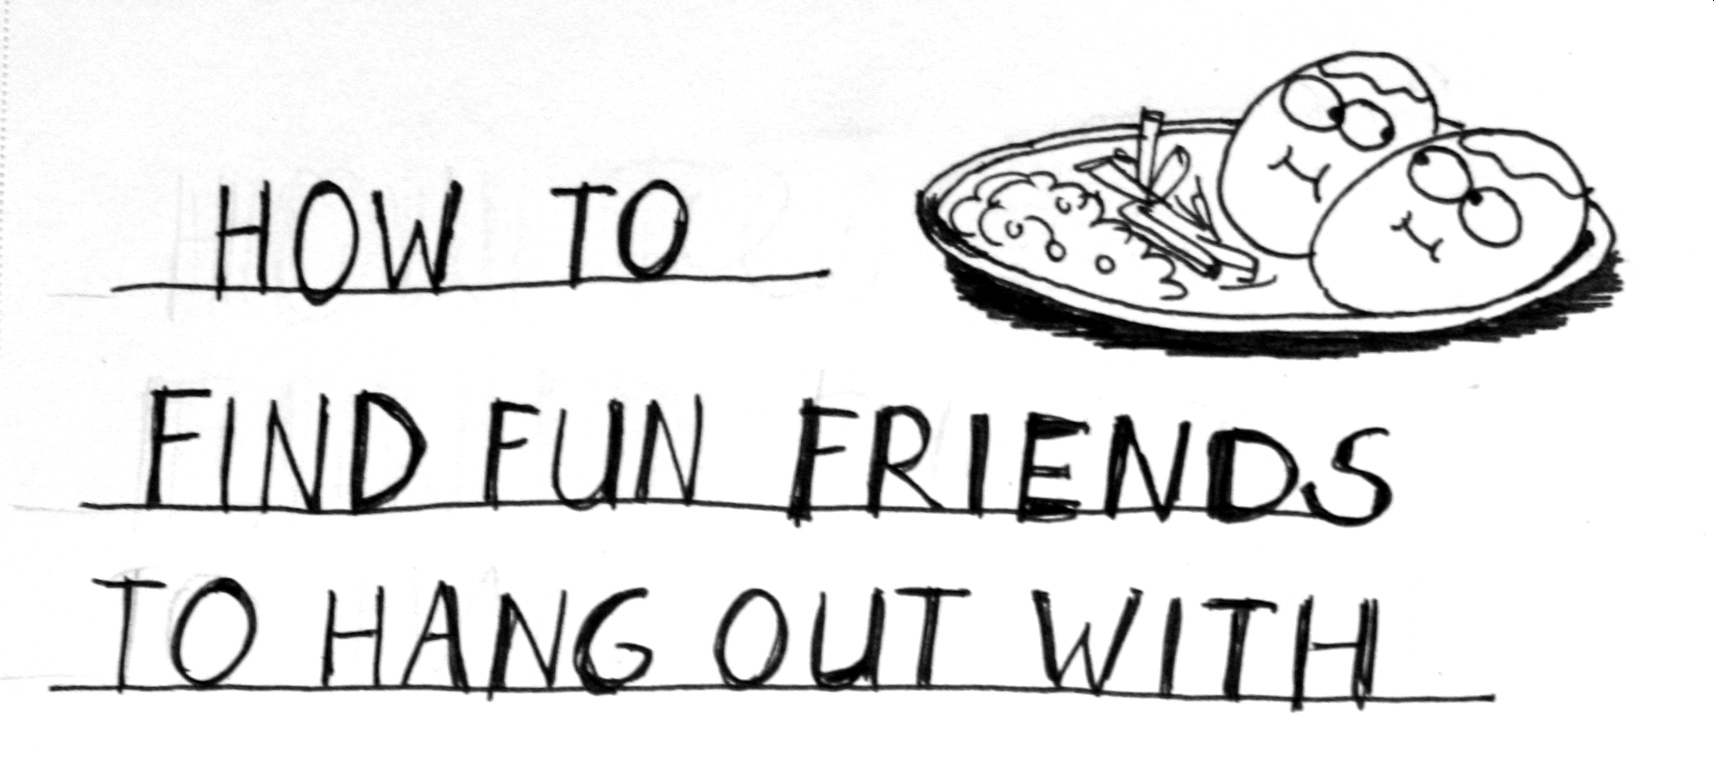 HOW TO
FIND FUN FRIENDS
TO HANG OUT WITH